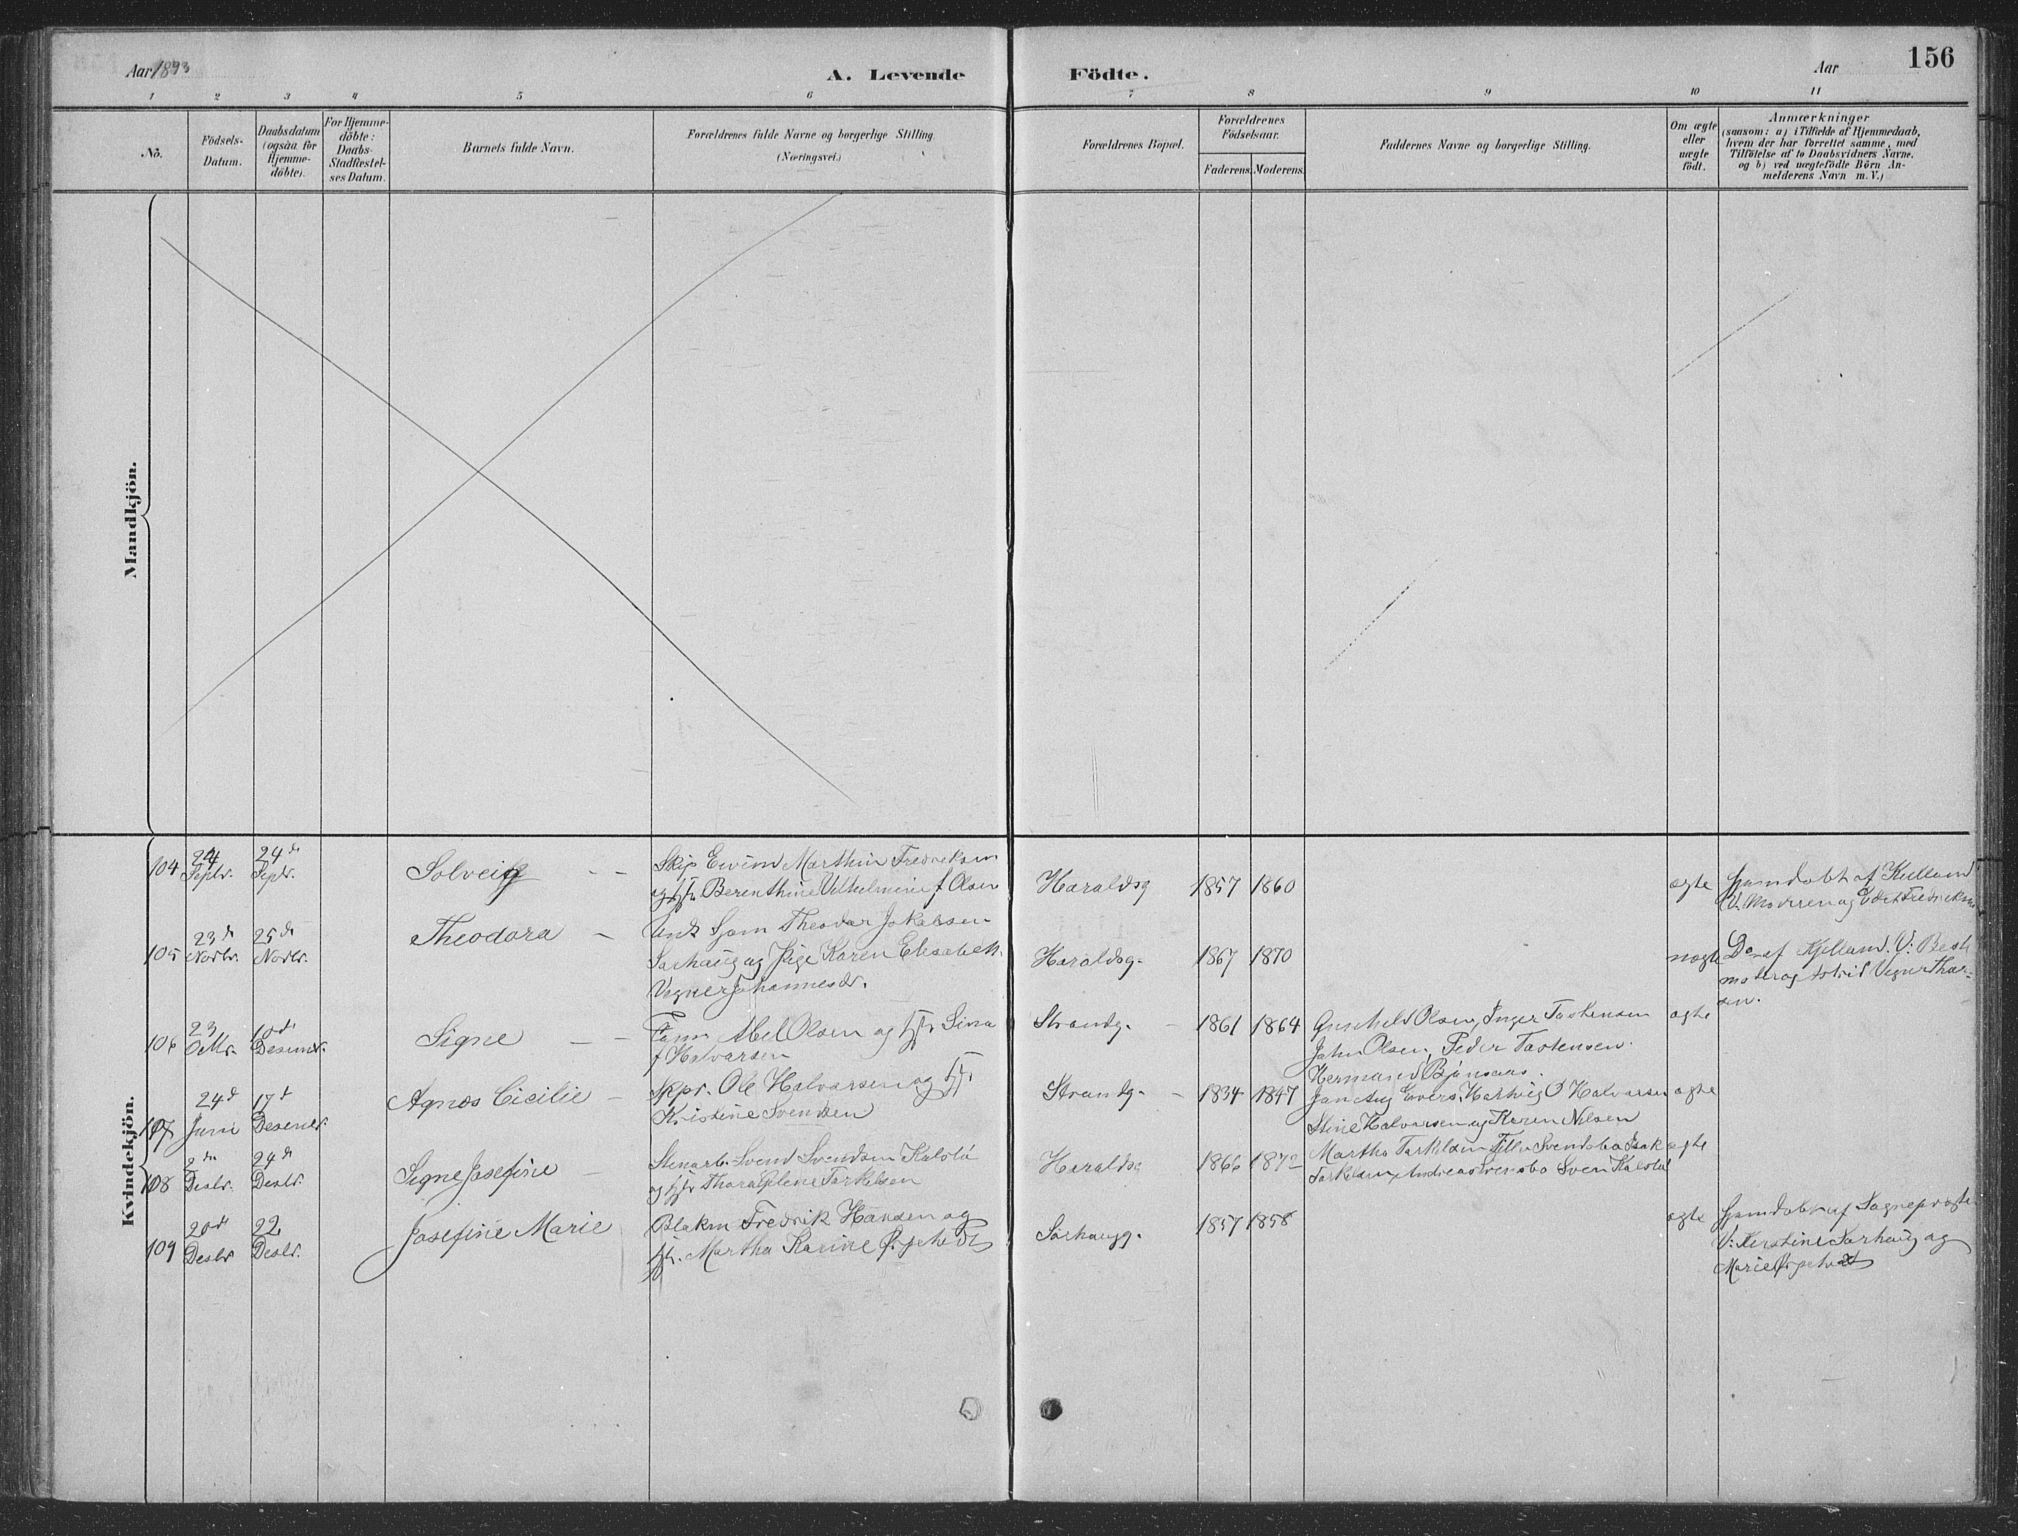 Aar 1893
A. Levende Födte.
Aar
156
1 2 3 4 5 6 7 8 9 10 11
No.
Födsels-Datum.
Daabsdatum (ogsaa for Hjemme-döbte).
For Hjemme-döbte: Daabs-Stadfæstel-ses Datum.
Barnets fulde Navn.
Forældrenes fulde Navne og borgerlige Stilling. (Næringsvei.)
Forældrenes Bopæl.
Forældrenes Födselsaar.
Faderens. Moderens.
Faddernes Navne og borgerlige Stilling.
Om ægte eller uægte födt.
Anmærkninger
(saasom: a) i Tilfælde af Hjemmedaab, hvem der har forrettet samme, med Tilföielse af to Daabsvidners Navne, og b) ved uægtefödte Börn An-melderens Navn m. V.)
Mandkjön.
Kvindekjön.
104 24 Septr. 24de Septr. Solveig - -
Skip Eivind Marthin Fredriksen
og Hstr Berenthine Vilhelmine f Olsen
Haraldsg 1857 1860 ægte
Hjemdøbt af Kielland
V. Moderen og Edet Fredriksen
105 23de Novbr. 25de Novbr. Theodora -
Ungk Sjøm Theodor Jakobsen
Sørhaug og Pige Karen Elisabeth
Vegner Johannesdr.
Haraldsg. 1867 1870 uægte
Do af Kjelland. V: Best
moder og Astrid Vegner Thor-
sen.
106 23 Oktbr. 10de Desember. Signe - -
Abel Olsen og Hstr Sina
f Halvorsen
Strandg. - 1861 1864
Gunhild Olsen, Inger Tostensen
John Olsen, Peder Tostensen.
Hermand
ægte
107 24d Juni 17d Desember. Agnes Cicilie -
Skpr. Ole Halvorsen og Hstr
Kristine Svendsen
Strandg. - 1834 1847
Jan Aug Evers, Hartvig O Halvorsen
Stine Halvorsen og Karen Nilsen
ægte
108 2den Desbr. 24de Desbr. Signe Josefine -
Stenarb. Svend Svendsen Kalstø
og Hstr Thora Elene Torkelsen
Haraldsg 1866 1872
Martha Torkelsen Svendsbø Isak
Torkelsen, Andreas Svensbø Sven Kalstø
ægte
109 20de Desbr 22 Desbr. Josefine Marie
Blakm Fredrik Hansen og
Hstr. Martha Karine
Sørhaugg. 1857 1858 ægte
Hjemdøbt af Sogneprest.
V: Kirstine Sørhaug og
Marie